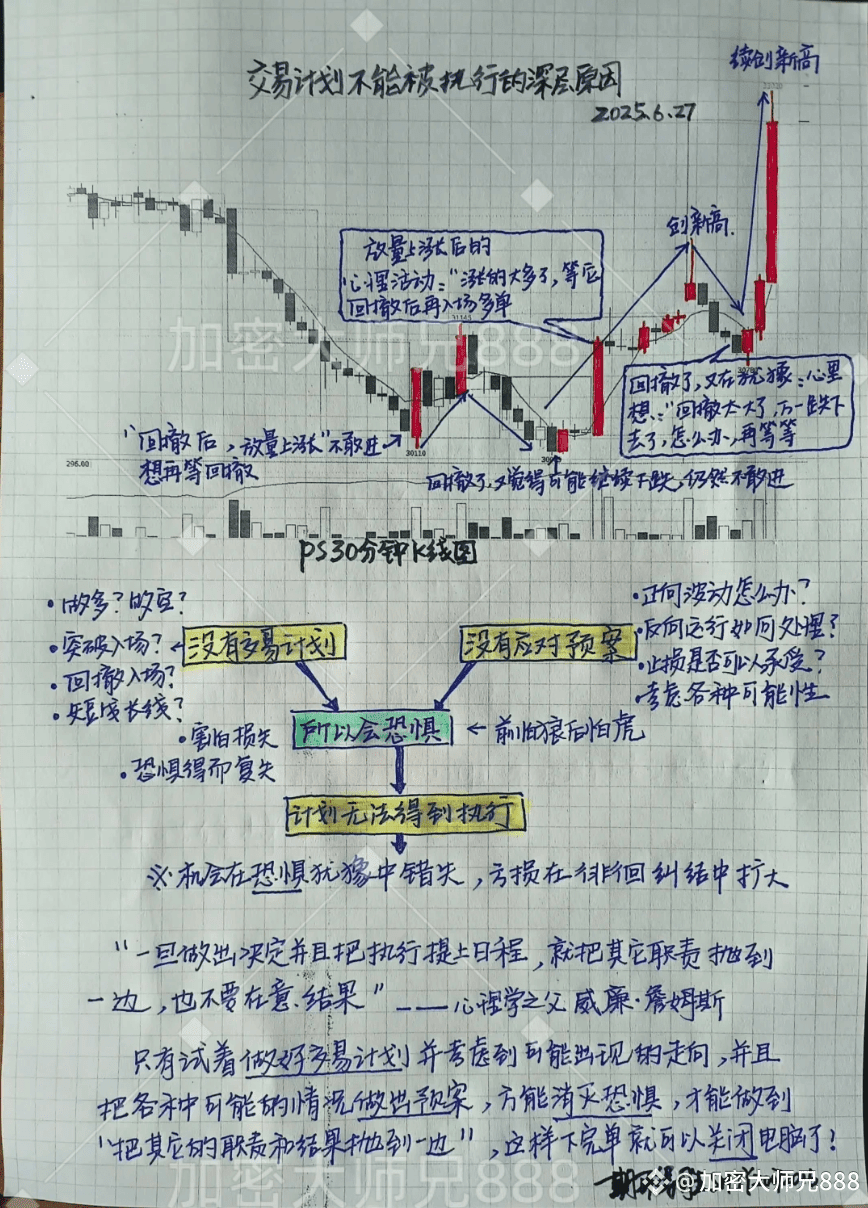 续创新高
交易计划不能被执行的深层原因
2025.6.27
创新高.
放量上涨后的
心理活动:“涨的太多了,等它
回撤后再入场多单
加密大师兄888
回撤了,又在犹豫:心里
想:“回撤太大了,万一跌下
去了,怎么办,再等等
“回撤后,放量上涨”不敢进
想再等回撤
30110
296.60
回撤了,又觉得可能继续下跌,仍然不敢进
PS30分钟K线图
·做多?做空?
·突破入场?
·回撤入场?
·短或长线?
没有交易计划
没有应对预案
·正向波动怎么办?
·反向运行如何处理?
·止损是否可以承受?
·考虑各种可能性
·害怕损失
·恐惧得而复失
所以会恐惧
前怕狼后怕虎
计划无法得到执行
※机会在恐惧犹豫中错失,亏损在徘徊纠结中扩大
“一旦做出决定并且把执行提上日程,就把其它职责抛到
一边,也不要在意结果”——心理学之父 威廉·詹姆斯
只有试着做好交易计划并考虑到可能出现的走向,并且
把各种可能的情况做出预案,方能消灭恐惧,才能做到
“把其它的职责和结果抛到一边”,这样下完单就可以关闭电脑了!
加密大师兄888
@加密大师兄888